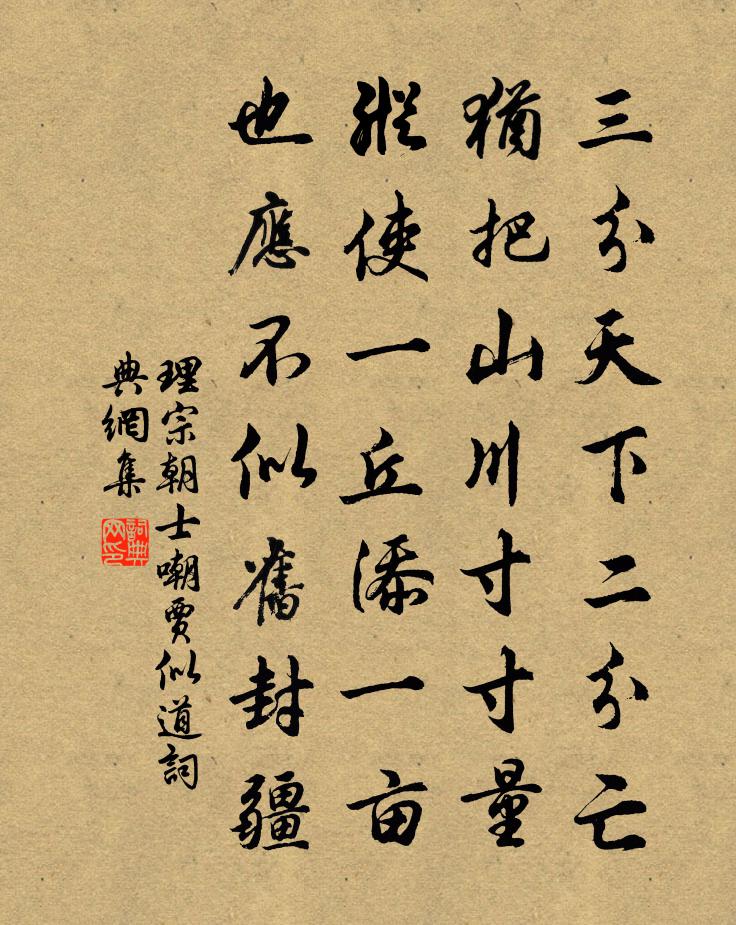 三分天下二分亡
猶把山川寸寸量
縱使一丘添一亩
也應不似舊封疆
理宗朝士嘲賈似道詞
典網集
詞典網印